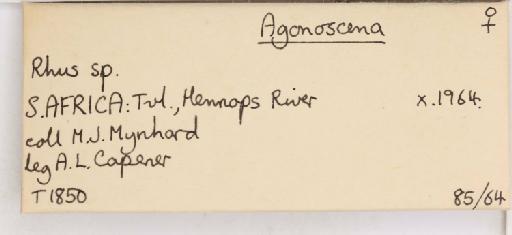 Agonoscena ♀
Rhus sp.
S.AFRICA: Tvl., Hennops River x.1964.
coll M.J. Mynhard
leg A.L. Capener
T1850 85/64